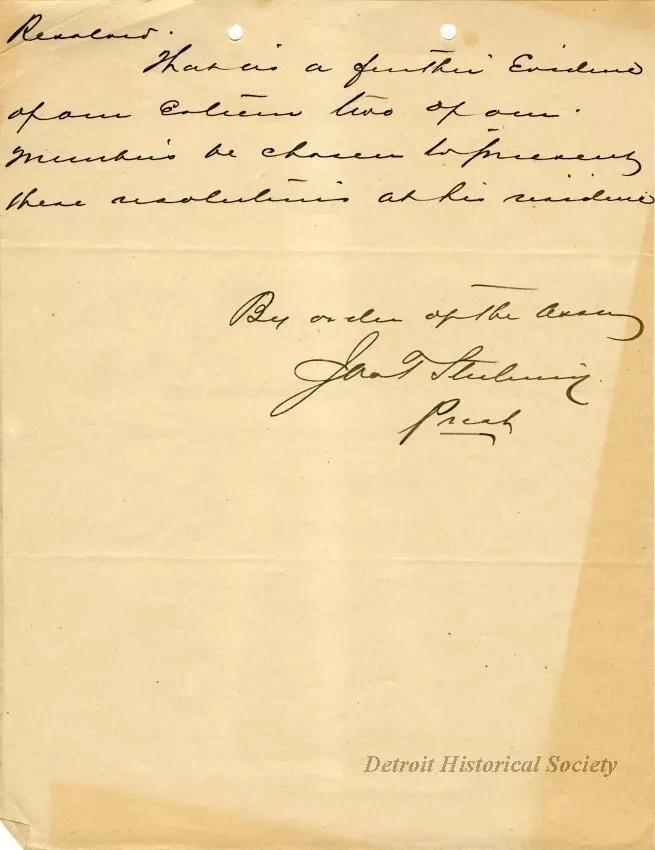 Resolved.
That as a further Evidence
of our Esteem two of our
members be chosen to present
these resolutions at his residence
By order of the Assn
Jas T Sterling
Prest
Detroit Historical Society